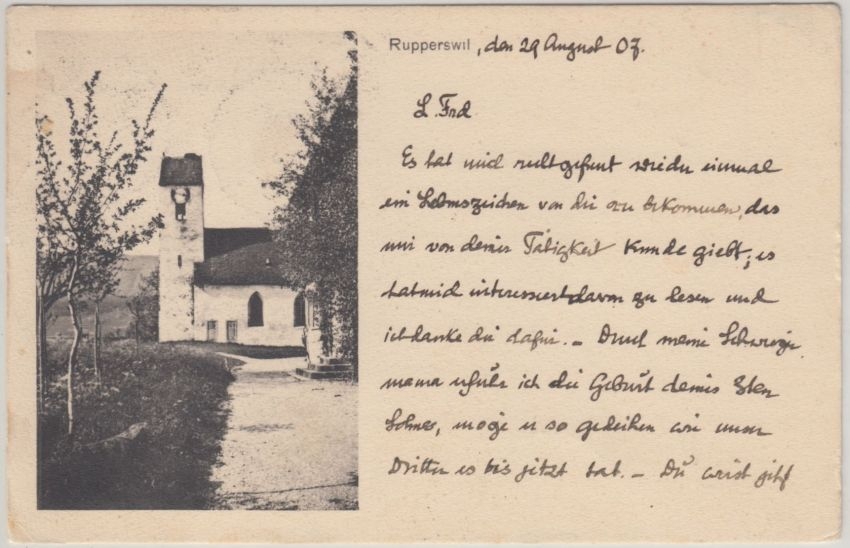 Rupperswil, den 29 August 07.
L. Frd.
Es hat mich recht gefreut wieder einmal
ein Lebenszeichen von dir zu bekommen, das
mir von deiner Tätigkeit Kunde giebt; es
hat mich interessiert davon zu lesen und
ich danke dir dafür. – Durch meine Schwieger
mama erfuhr ich die Geburt deines 3ten
Sohnes, möge er so gedeihen wie unser
Dritter es bis jetzt tat. – Du wirst